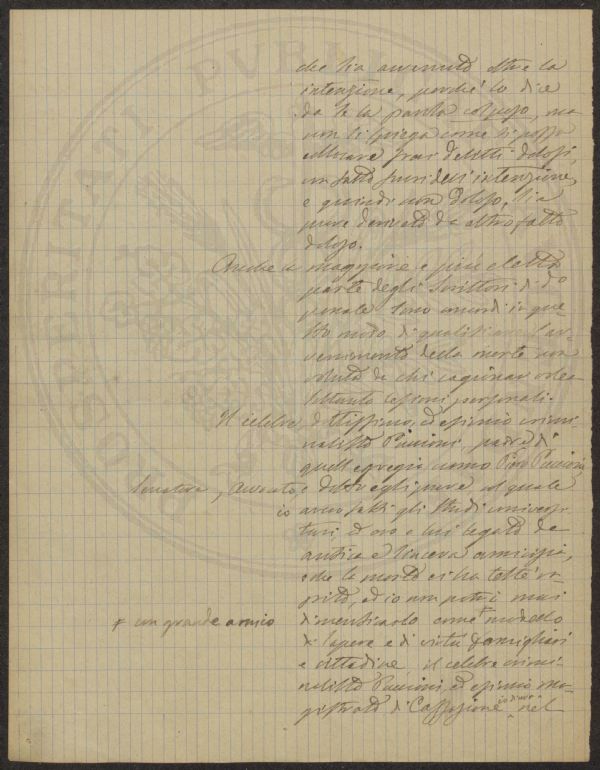 che sia avvenuto oltre la
intenzione, perché lo dice
da se la parola colposo, ma
non si spiega come si possa
collocare frai delitti dolosi,
un fatto fuori dell'intenzione,
e quindi non doloso. Sia
pure derivato da altro fatto
doloso.
Anche la maggiore e più eletta
parte degli scrittori di do
penale sono concordi in que
sto modo di qualificare l'av
venimento della morte non
voluta da chi cagionar volea
soltanto lesioni personali.
Il celebre, dottissimo, ed esimio crimi
nalista Puccioni, padre di
quell'egregio uomo Piero Puccioni,
Senatore, Avvocato, e dotto egli pure col quale
io aveo fatti gli studi universi
tari, ed ero a lui legato da
antica e sincera amicizia,
e che la morte ci ha testé ra
pito, ed io non potrò mai
dimenticarlo come modello
≠ un grande amico
di sapere e di virtù famigliari
e cittadine il celebre crimi
nalista Puccioni, ed esimio ma
gistrato di Cassazione nel
RUBBLICAE LIBERTATI PUBLI